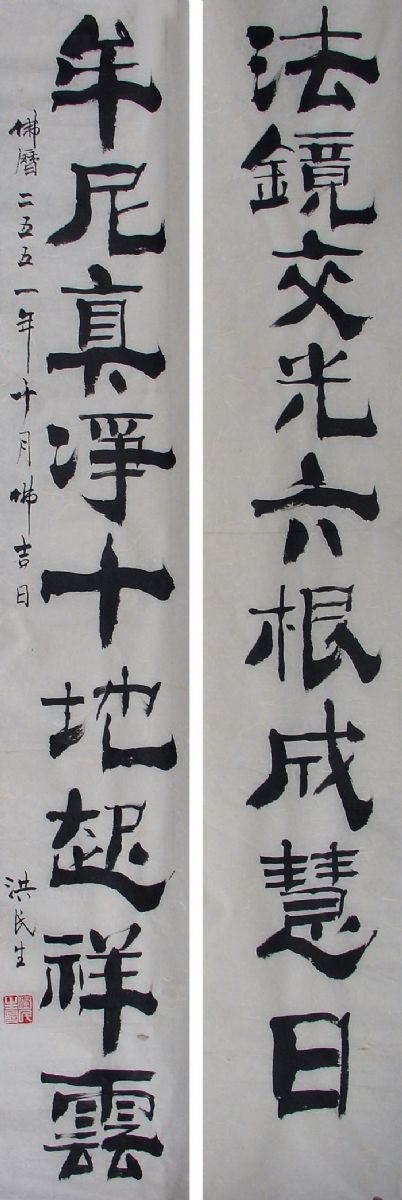 法鏡交光六根成慧日
牟尼真淨十地起祥雲
佛曆二五五一年十月佛吉日
洪民生